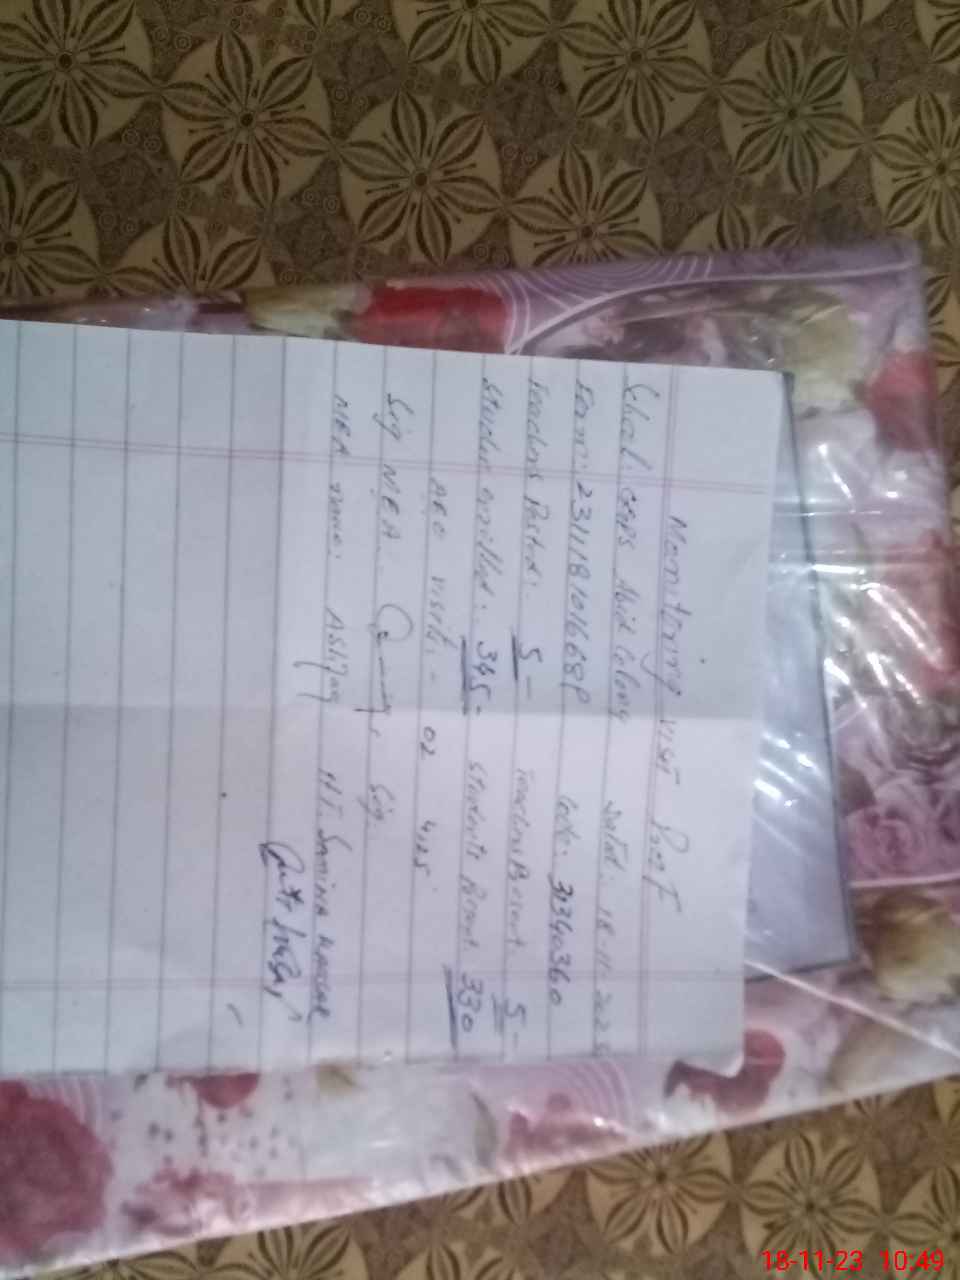 Monitoring visit Proof
School: GGPS Abid Colony Dated: 18-11-202
Code: 31340360
Teachers Posted: 5 - Teachers Present: 5 -
Student enrolled: 345 - Students Present: 330
AEO visit: - 02 4,25
Sig MEA. Sig.
MEA name: Ashfaq HT. Samina
18-11-23 10:49